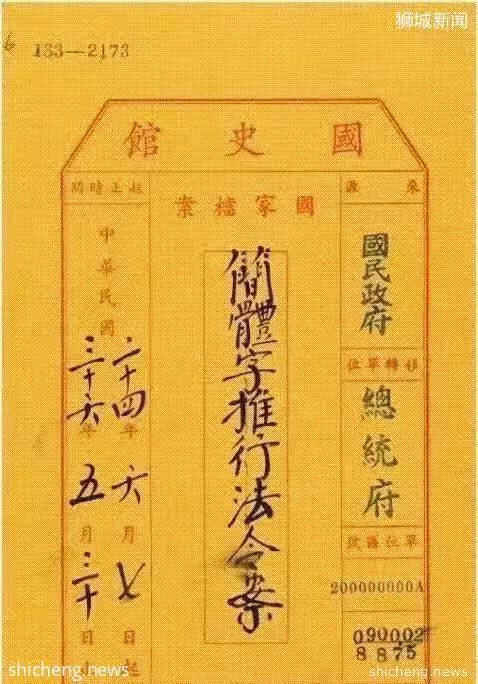 狮城新闻
133—2173
國史館
來源
國民政府
移轉單位
總統府
單位編號
200000000A
090002
8875
國家檔案
簡體字推行法令案
起止時間
中華民國
二十四年六月七日起
三十六年五月三十日
shicheng.news
shicheng.news